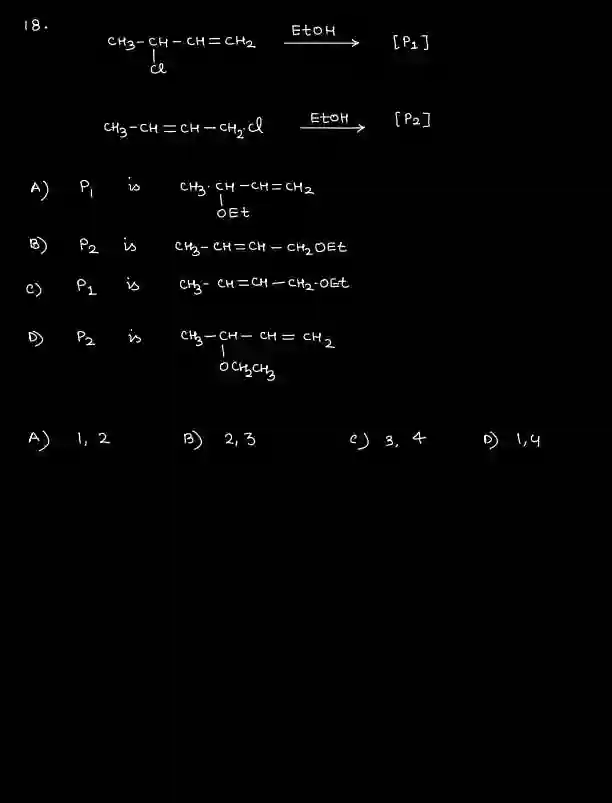 18.
CH3-CH-CH=CH2 EtOH [P1]
Cl
CH3-CH=CH-CH2Cl EtOH [P2]
A) P1 is CH3-CH-CH=CH2
OEt
B) P2 is CH3-CH=CH-CH2OEt
C) P1 is CH3-CH=CH-CH2-OEt
D) P2 is CH3-CH-CH=CH2
OCH2CH3
A) 1, 2 B) 2, 3 C) 3, 4 D) 1, 4